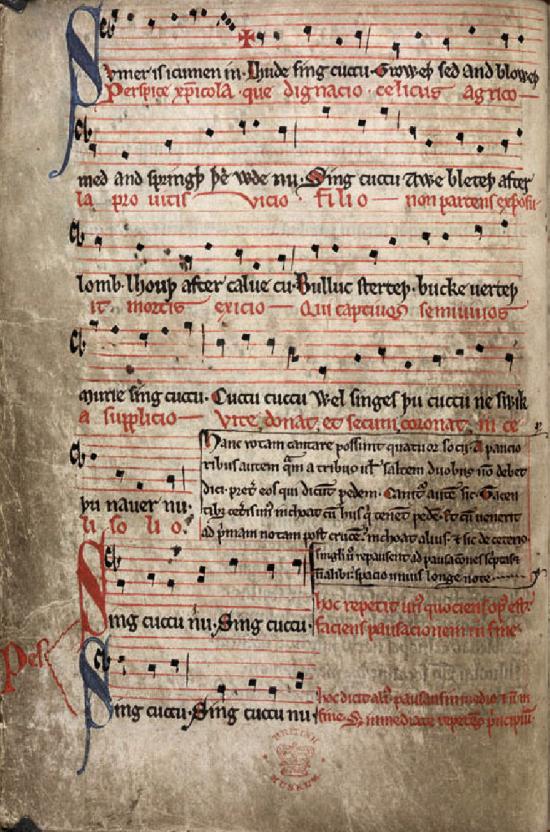 Sumer is icumen in. Lhude sing cuccu. Groweþ sed and bloweþ
Perspice xpicola. que dignacio celicus agrico
med and springþ þe wde nu. Sing cuccu Awe bleteþ after
la pro uitis vicio filio non parcens exposu
lomb. lhouþ after calue cu. Bulluc sterteþ. bucke uerteþ
it mortis exicio Qui captiuos semiuiuos
murie sing cuccu. Cuccu cuccu Wel singes þu cuccu ne swik
a supplicio Vite donat et secum coronat in ce
þu nauer nu.
li solio.
Hanc rotam cantare possunt quatuor socij. A paucio
ribus autem qm a tribus ul saltem duobus non debet
dici. pret eos qui dicunt pedem. Canit aute sic. Tacen
tibus ceteris un inchoat cu hiis qi tenent pede. Et cu uenerit
ad pmam notam post cruce inchoat alius. & sic de ceteris
singli u repausent ad pausaciones scriptas
& n alibi spacio unius longe note
Pes
Sing cuccu nu. Sing cuccu.
hoc repetit un quociens op est
faciens pausacionem in fine
Sing cuccu. Sing cuccu nu
hoc dicit ali pausans in medio & n in
fine. Sz inmediate repetens pincipiu
BRITISH MUSEUM